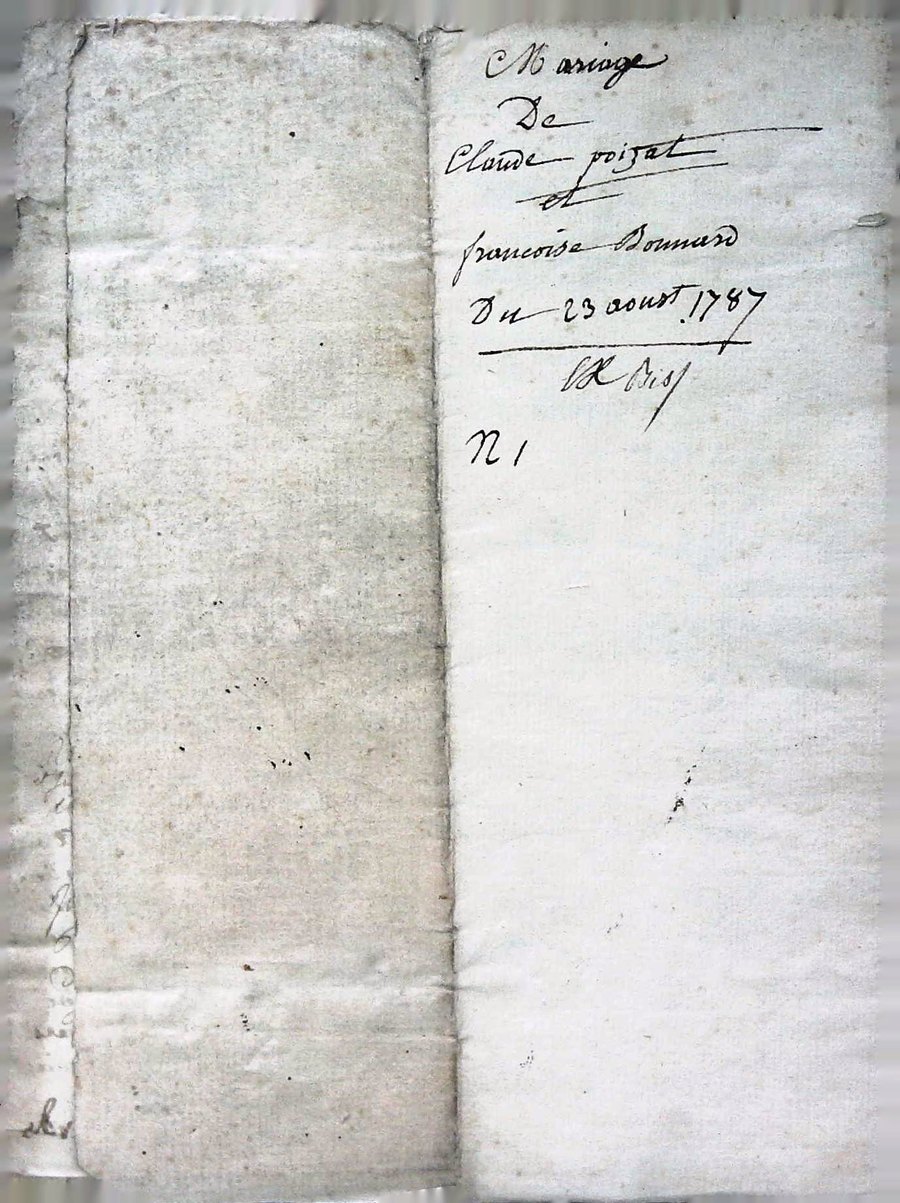 Mariage
De
Claude poizat
et
francoise Bonnard
Du 23 aoust 1787
N 1